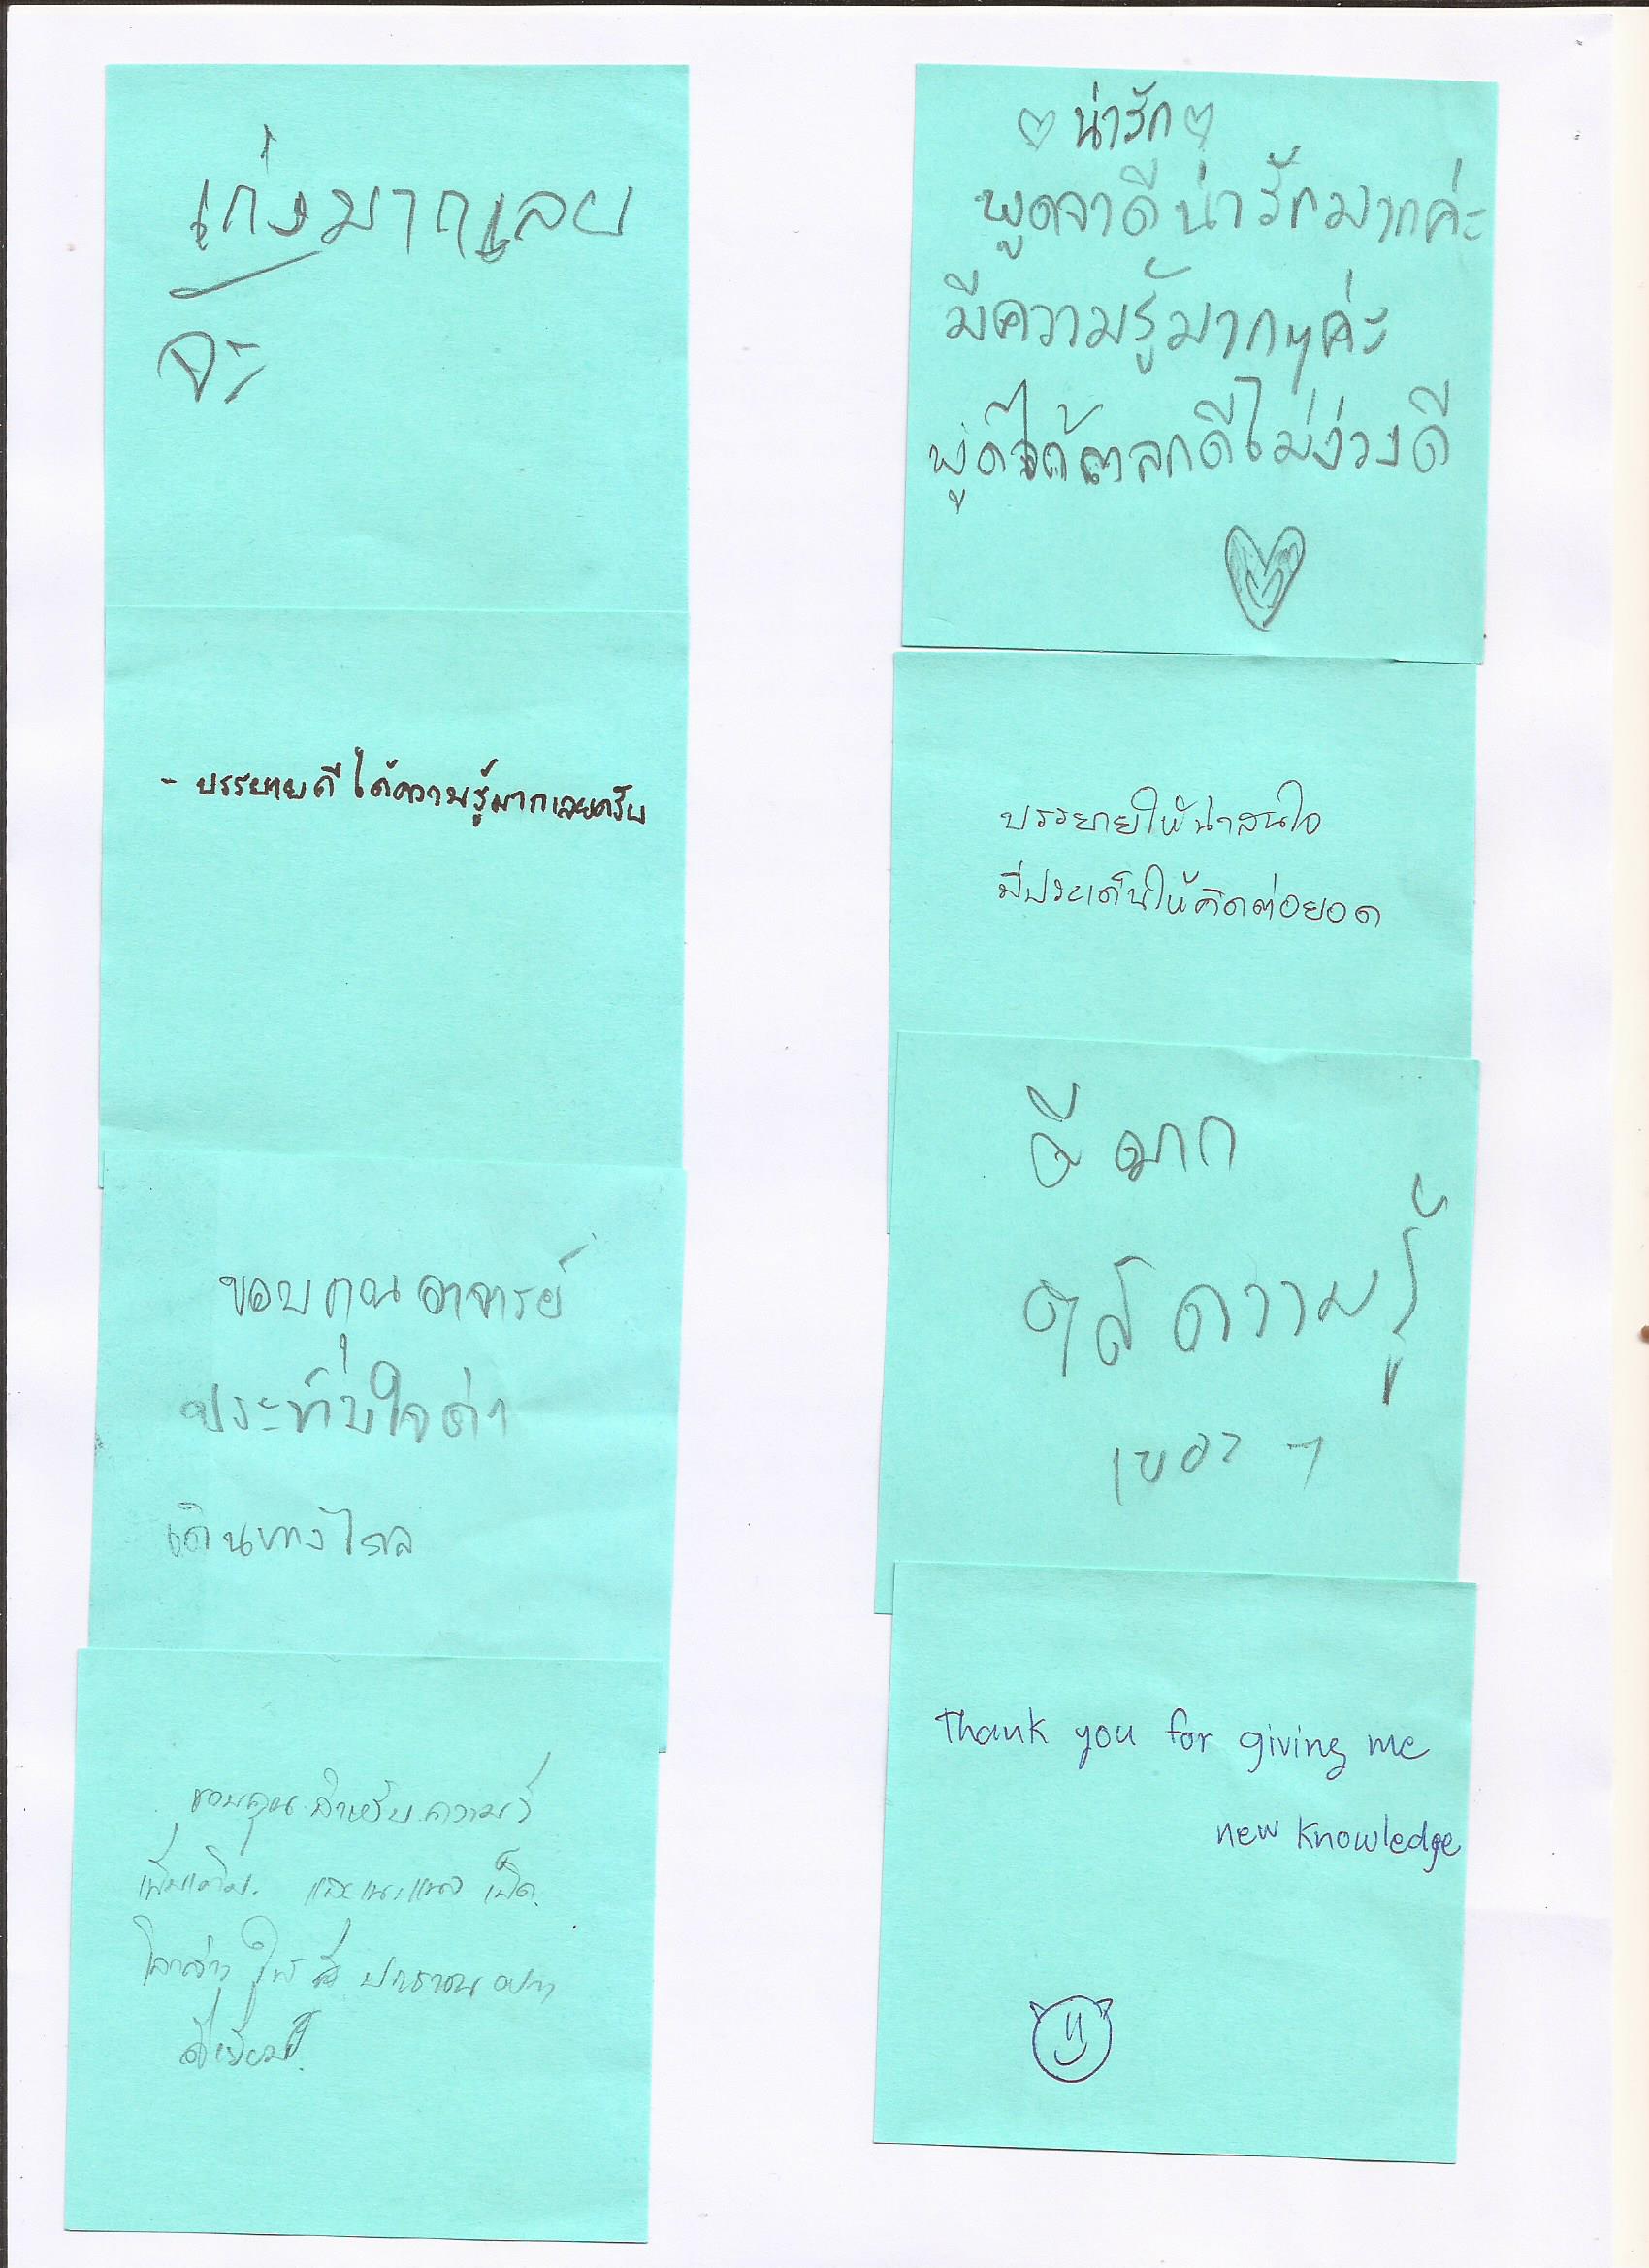 เก่งมากเลย
จ้ะ
- บรรยายดี ได้ความรู้มากเลยครับ
ขอบคุณ อาจารย์
ประทับใจค่ะ
เดินทางไกล
ขอบคุณ สำหรับ ความรู้
เพิ่มเติม. และแนะแนว
ให้
น่ารัก
พูดจาดีน่ารักมากค่ะ
มีความรู้มากๆค่ะ
พูดได้ตลกดีไม่ง่วงดี
บรรยายให้น่าสนใจ
มีประเด็นให้คิดต่อยอด
ดีมาก
ได้ความรู้
เยอะ ๆ
Thank you for giving me
new knowledge